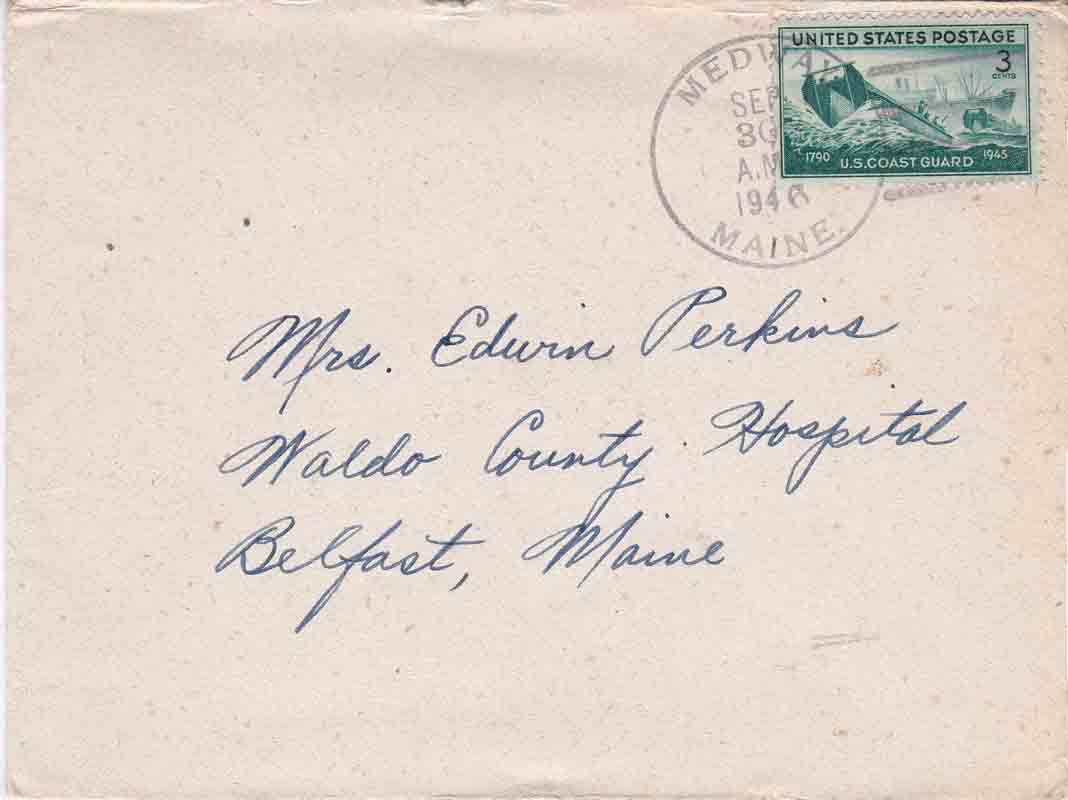 UNITED STATES POSTAGE
3
CENTS
1790 U.S. COAST GUARD 1945
MEDWAY
SEP
30
A.M.
1946
MAINE.
Mrs. Edwin Perkins
Waldo County Hospital
Belfast, Maine